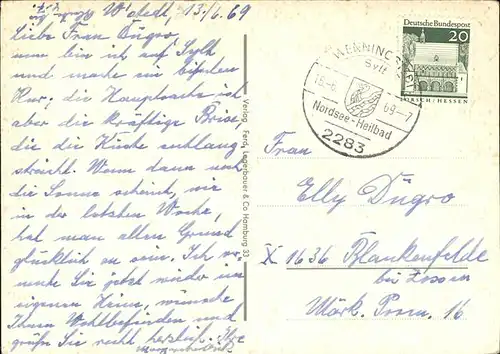 z.Zt. Westerl. 13./6.69
Liebe Frau Dügro,
nun bin ich auf Sylt
und mache ein bißchen
Kur; die Hauptsache ist
aber die kräftige Brise,
die die Küste entlang
streicht. Wenn dann noch
die Sonne scheint, wie
in der letzten Woche,
hat man allen Grund
glücklich zu sein. Ich ver-
mute Sie jetzt wieder im
eigenen Heim, wünsche
Ihnen Wohlbefinden und
grüße Sie recht herzlich. Ihre
Verlag Ferd. Lagerbauer & Co Hamburg 33
Deutsche Bundespost
20
LORSCH/HESSEN
WENNINGSTEDT
Sylt
69-7
Nordsee-Heilbad
2283
Frau
Elly Dügro
X 1636 Blankenfelde
bei Zossen
Märk. Prom. 16